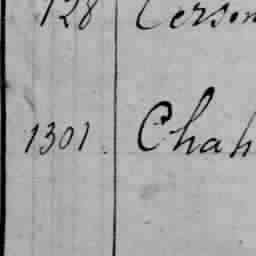 128 Cerson
1301. Chah